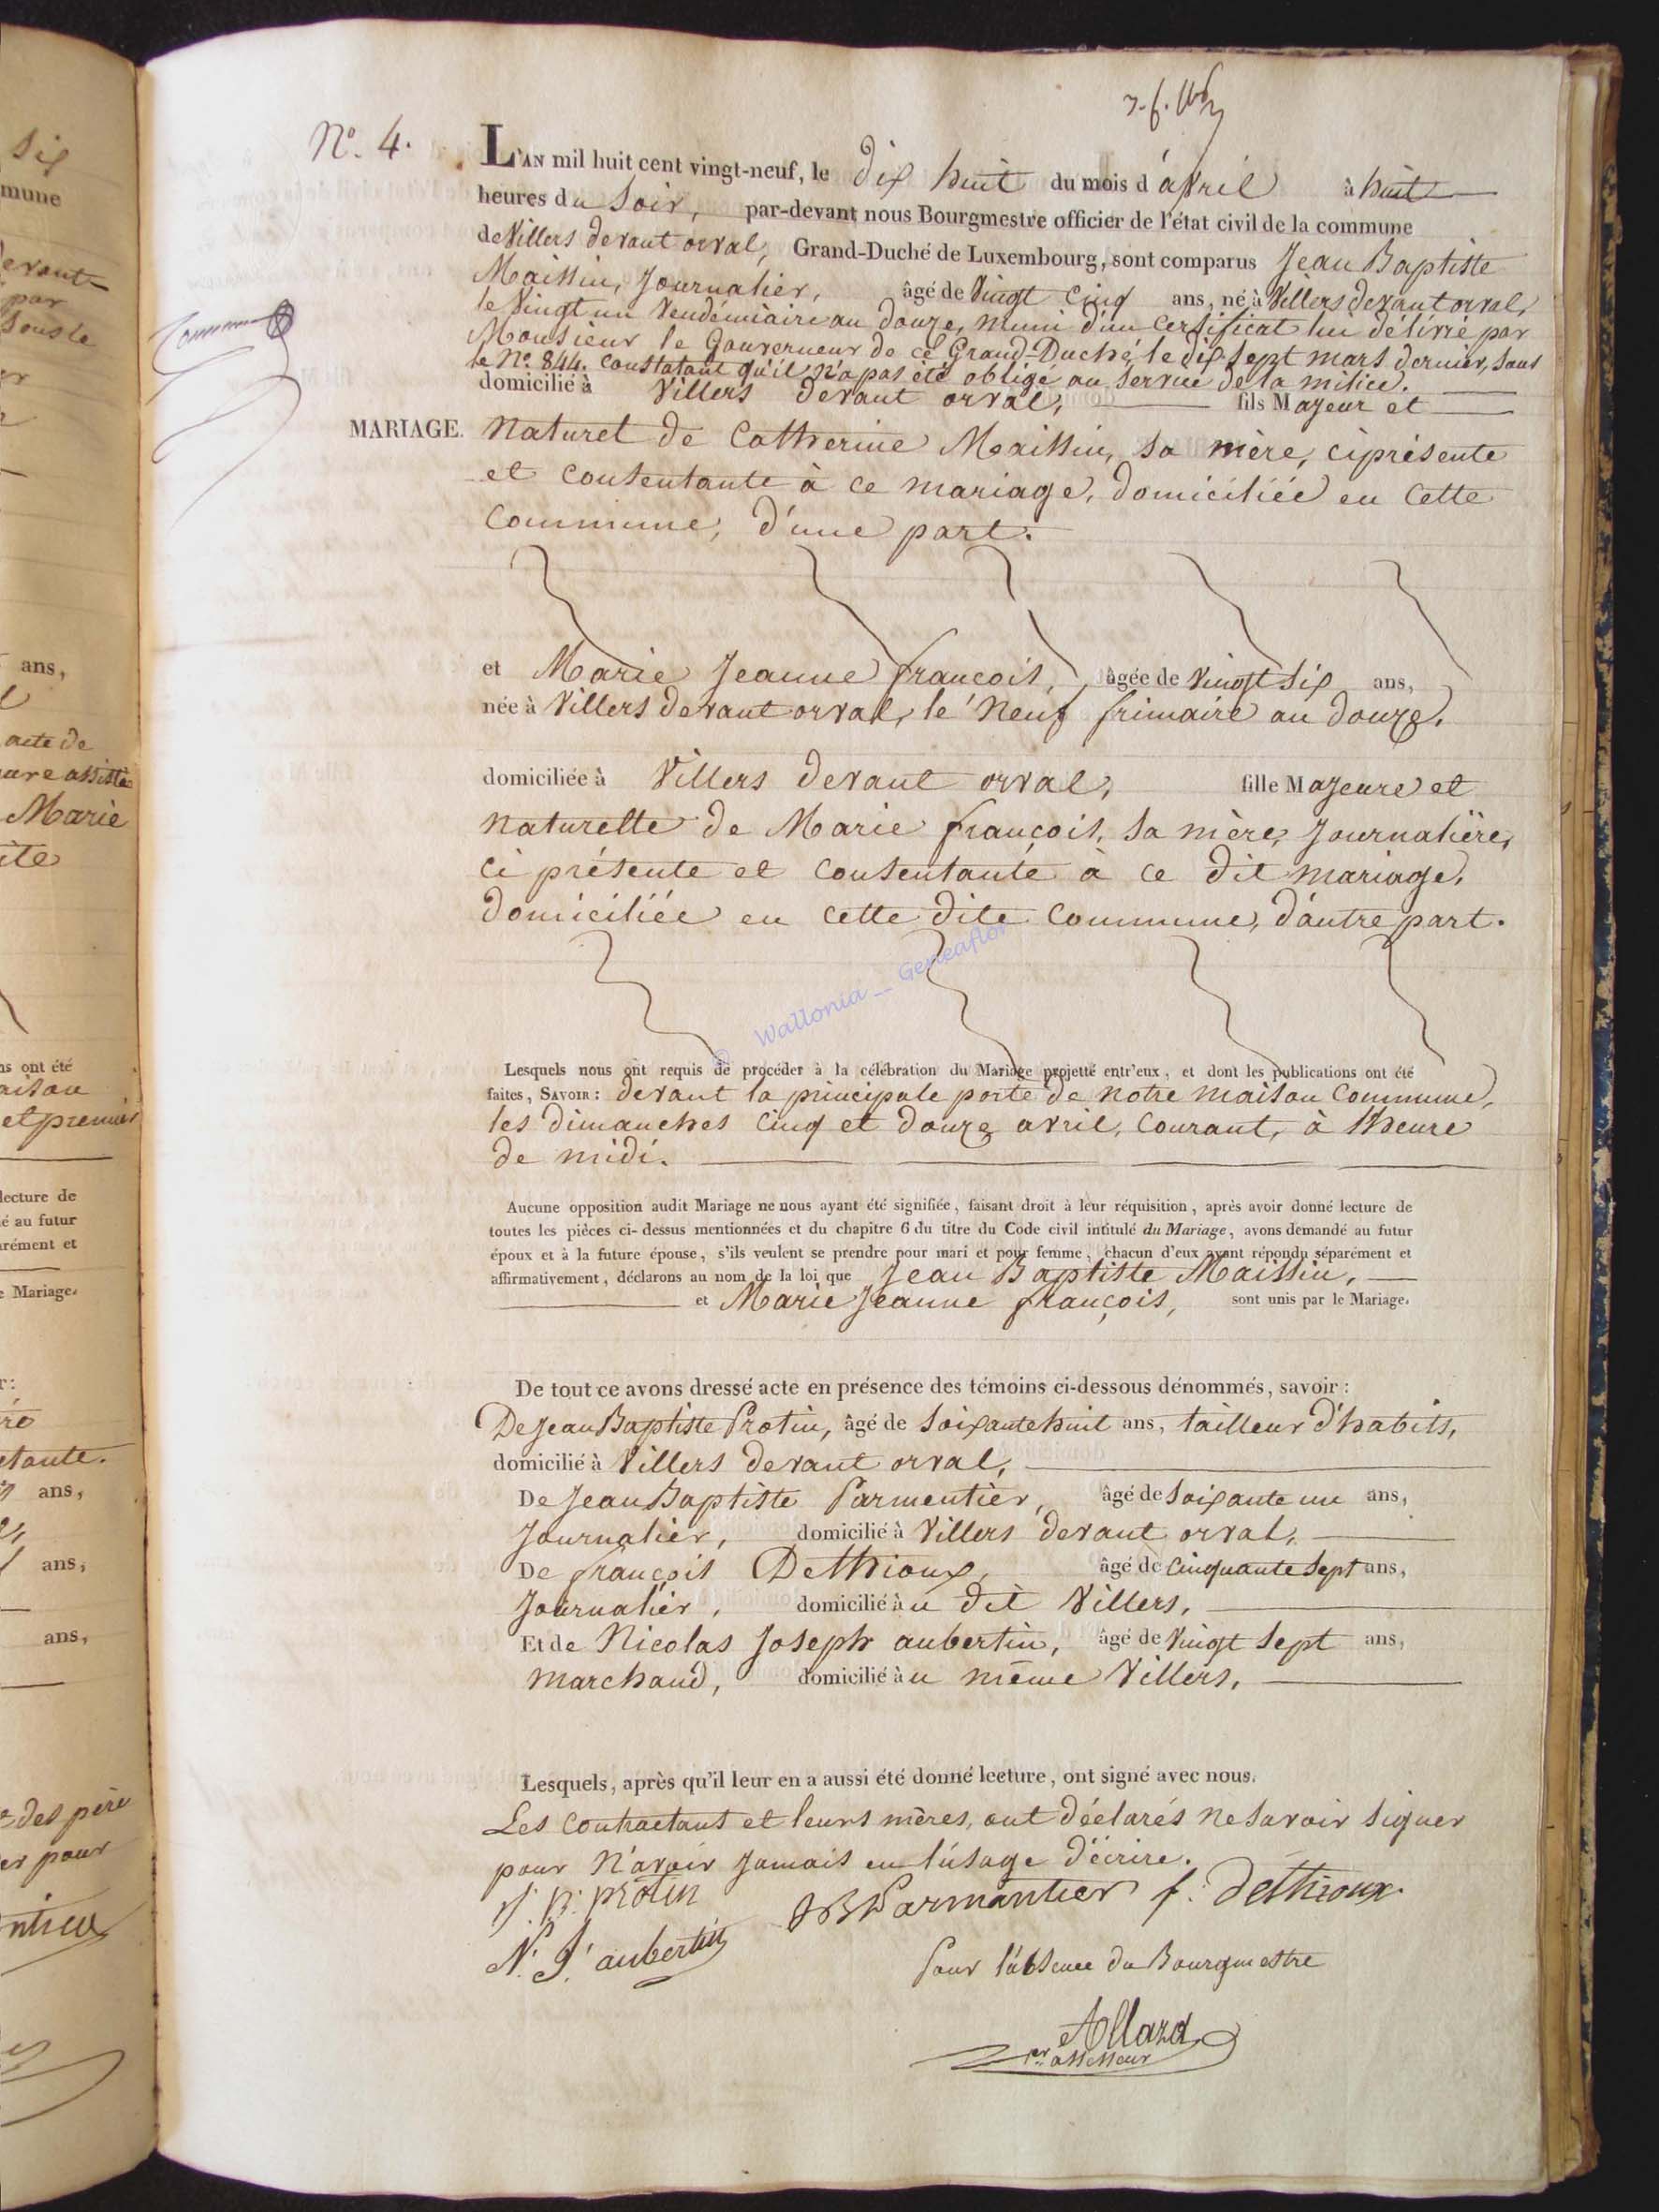 six
mune
evant
par
sous le
ans,
acte de
assisté
Marie
ite
ns ont été
maison
et premier
lecture de
é au futur
arément et
e Mariage.
r:
etante.
ans,
ans,
ans,
des père
er pour
Nº. 4.
L'AN mil huit cent vingt-neuf, le dix huit du mois d'avril à huit
heures du Soir, par-devant nous Bourgmestre officier de l'état civil de la commune
de Villers devant orval, Grand-Duché de Luxembourg, sont comparus Jean Baptiste
Maissin, Journalier, âgé de Vingt Cinq ans, né à Villers devant orval,
le Vingt un Vendémiaire an douze, muni d'un Certificat lui délivré par
Monsieur le Gouverneur de ce Grand-Duché, le dix-sept mars dernier, sous
le Nº. 844. constatant qu'il n'a pas été obligé au service de la milice.
domicilié à Villers devant orval, fils Majeur et
MARIAGE.
naturel de Catherine Maissin, sa mère, ci présente
et consentante à ce mariage, domiciliée en Cette
Commune, d'une part.
et Marie Jeanne françois, âgée de Vingt Six ans,
née à Villers devant orval, le neuf frimaire an douze,
domiciliée à Villers devant orval, fille Majeure et
naturelle de Marie françois, sa mère, Journalière,
ci présente et consentante à ce dit mariage,
domiciliée en cette dite Commune, d'autre part.
© Wallonia__Geneaflor
Lesquels nous ont requis de procéder à la célébration du Mariage projetté entr'eux, et dont les publications ont été
faites, SAVOIR: devant la principale porte de notre maison Commune,
les dimanches Cinq et douze avril, Courant, à l'heure
de midi.
Aucune opposition audit Mariage ne nous ayant été signifiée, faisant droit à leur réquisition, après avoir donné lecture de
toutes les pièces ci-dessus mentionnées et du chapitre 6 du titre du Code civil intitulé du Mariage, avons demandé au futur
époux et à la future épouse, s'ils veulent se prendre pour mari et pour femme, chacun d'eux ayant répondu séparément et
affirmativement, déclarons au nom de la loi que Jean Baptiste Maissin,
et Marie Jeanne françois, sont unis par le Mariage.
De tout ce avons dressé acte en présence des témoins ci-dessous dénommés, savoir:
De Jean Baptiste Protin, âgé de Soixante huit ans, tailleur d'habits,
domicilié à Villers devant orval,
De Jean Baptiste Parmentier, âgé de Soixante un ans,
Journalier, domicilié à Villers devant orval,
De françois Dethioux, âgé de Cinquante sept ans,
Journalier, domicilié au dit Villers,
Et de Nicolas Joseph aubertin, âgé de Vingt sept ans,
marchand, domicilié au même Villers,
Lesquels, après qu'il leur en a aussi été donné lecture, ont signé avec nous.
Les contractants et leurs mères, ont déclarés ne savoir signer
pour n'avoir jamais eu l'usage d'écrire.
J. B. protin JB Parmantier f. dethioux.
N. J. aubertin
Pour l'absence du Bourgmestre
Allard
er assesseur